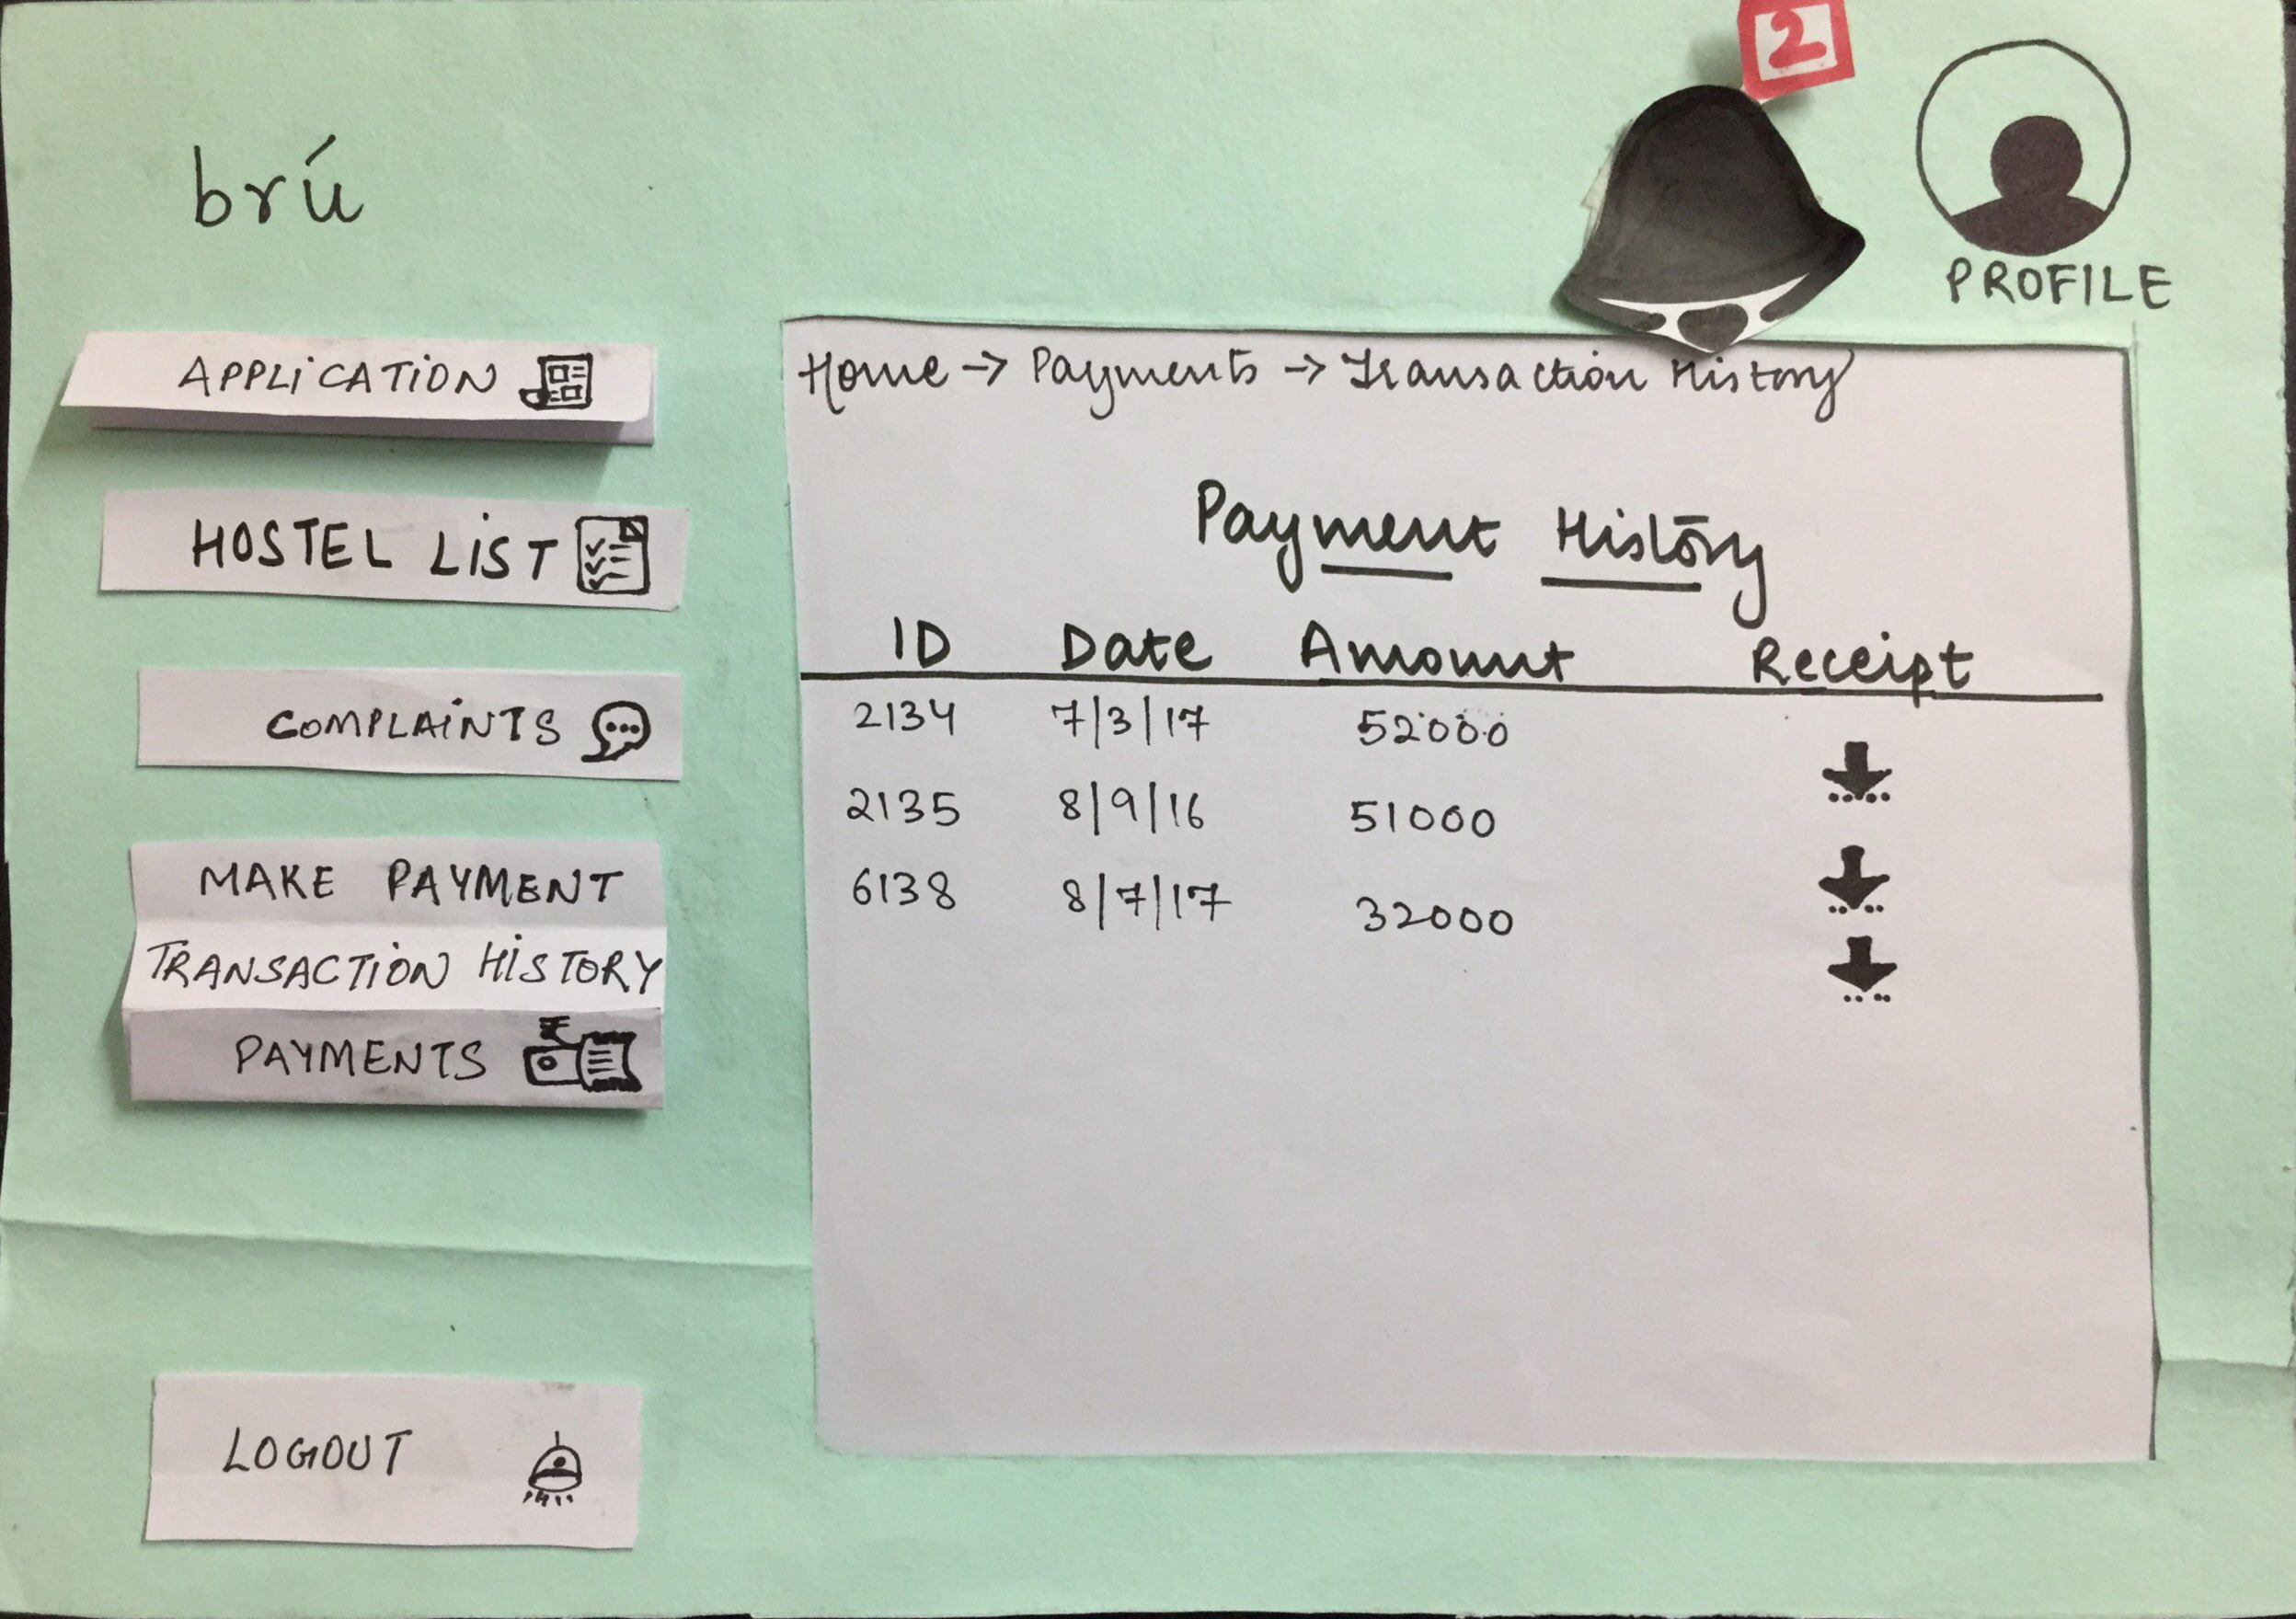 2
brú
PROFILE
APPLICATION
HOSTEL LIST
COMPLAINTS
MAKE PAYMENT
TRANSACTION HISTORY
PAYMENTS ₹
LOGOUT
Home → Payments → Transaction History
Payment History
ID Date Amount Receipt
2134 7/3/17 52000
2135 8/9/16 51000
6138 8/7/17 32000